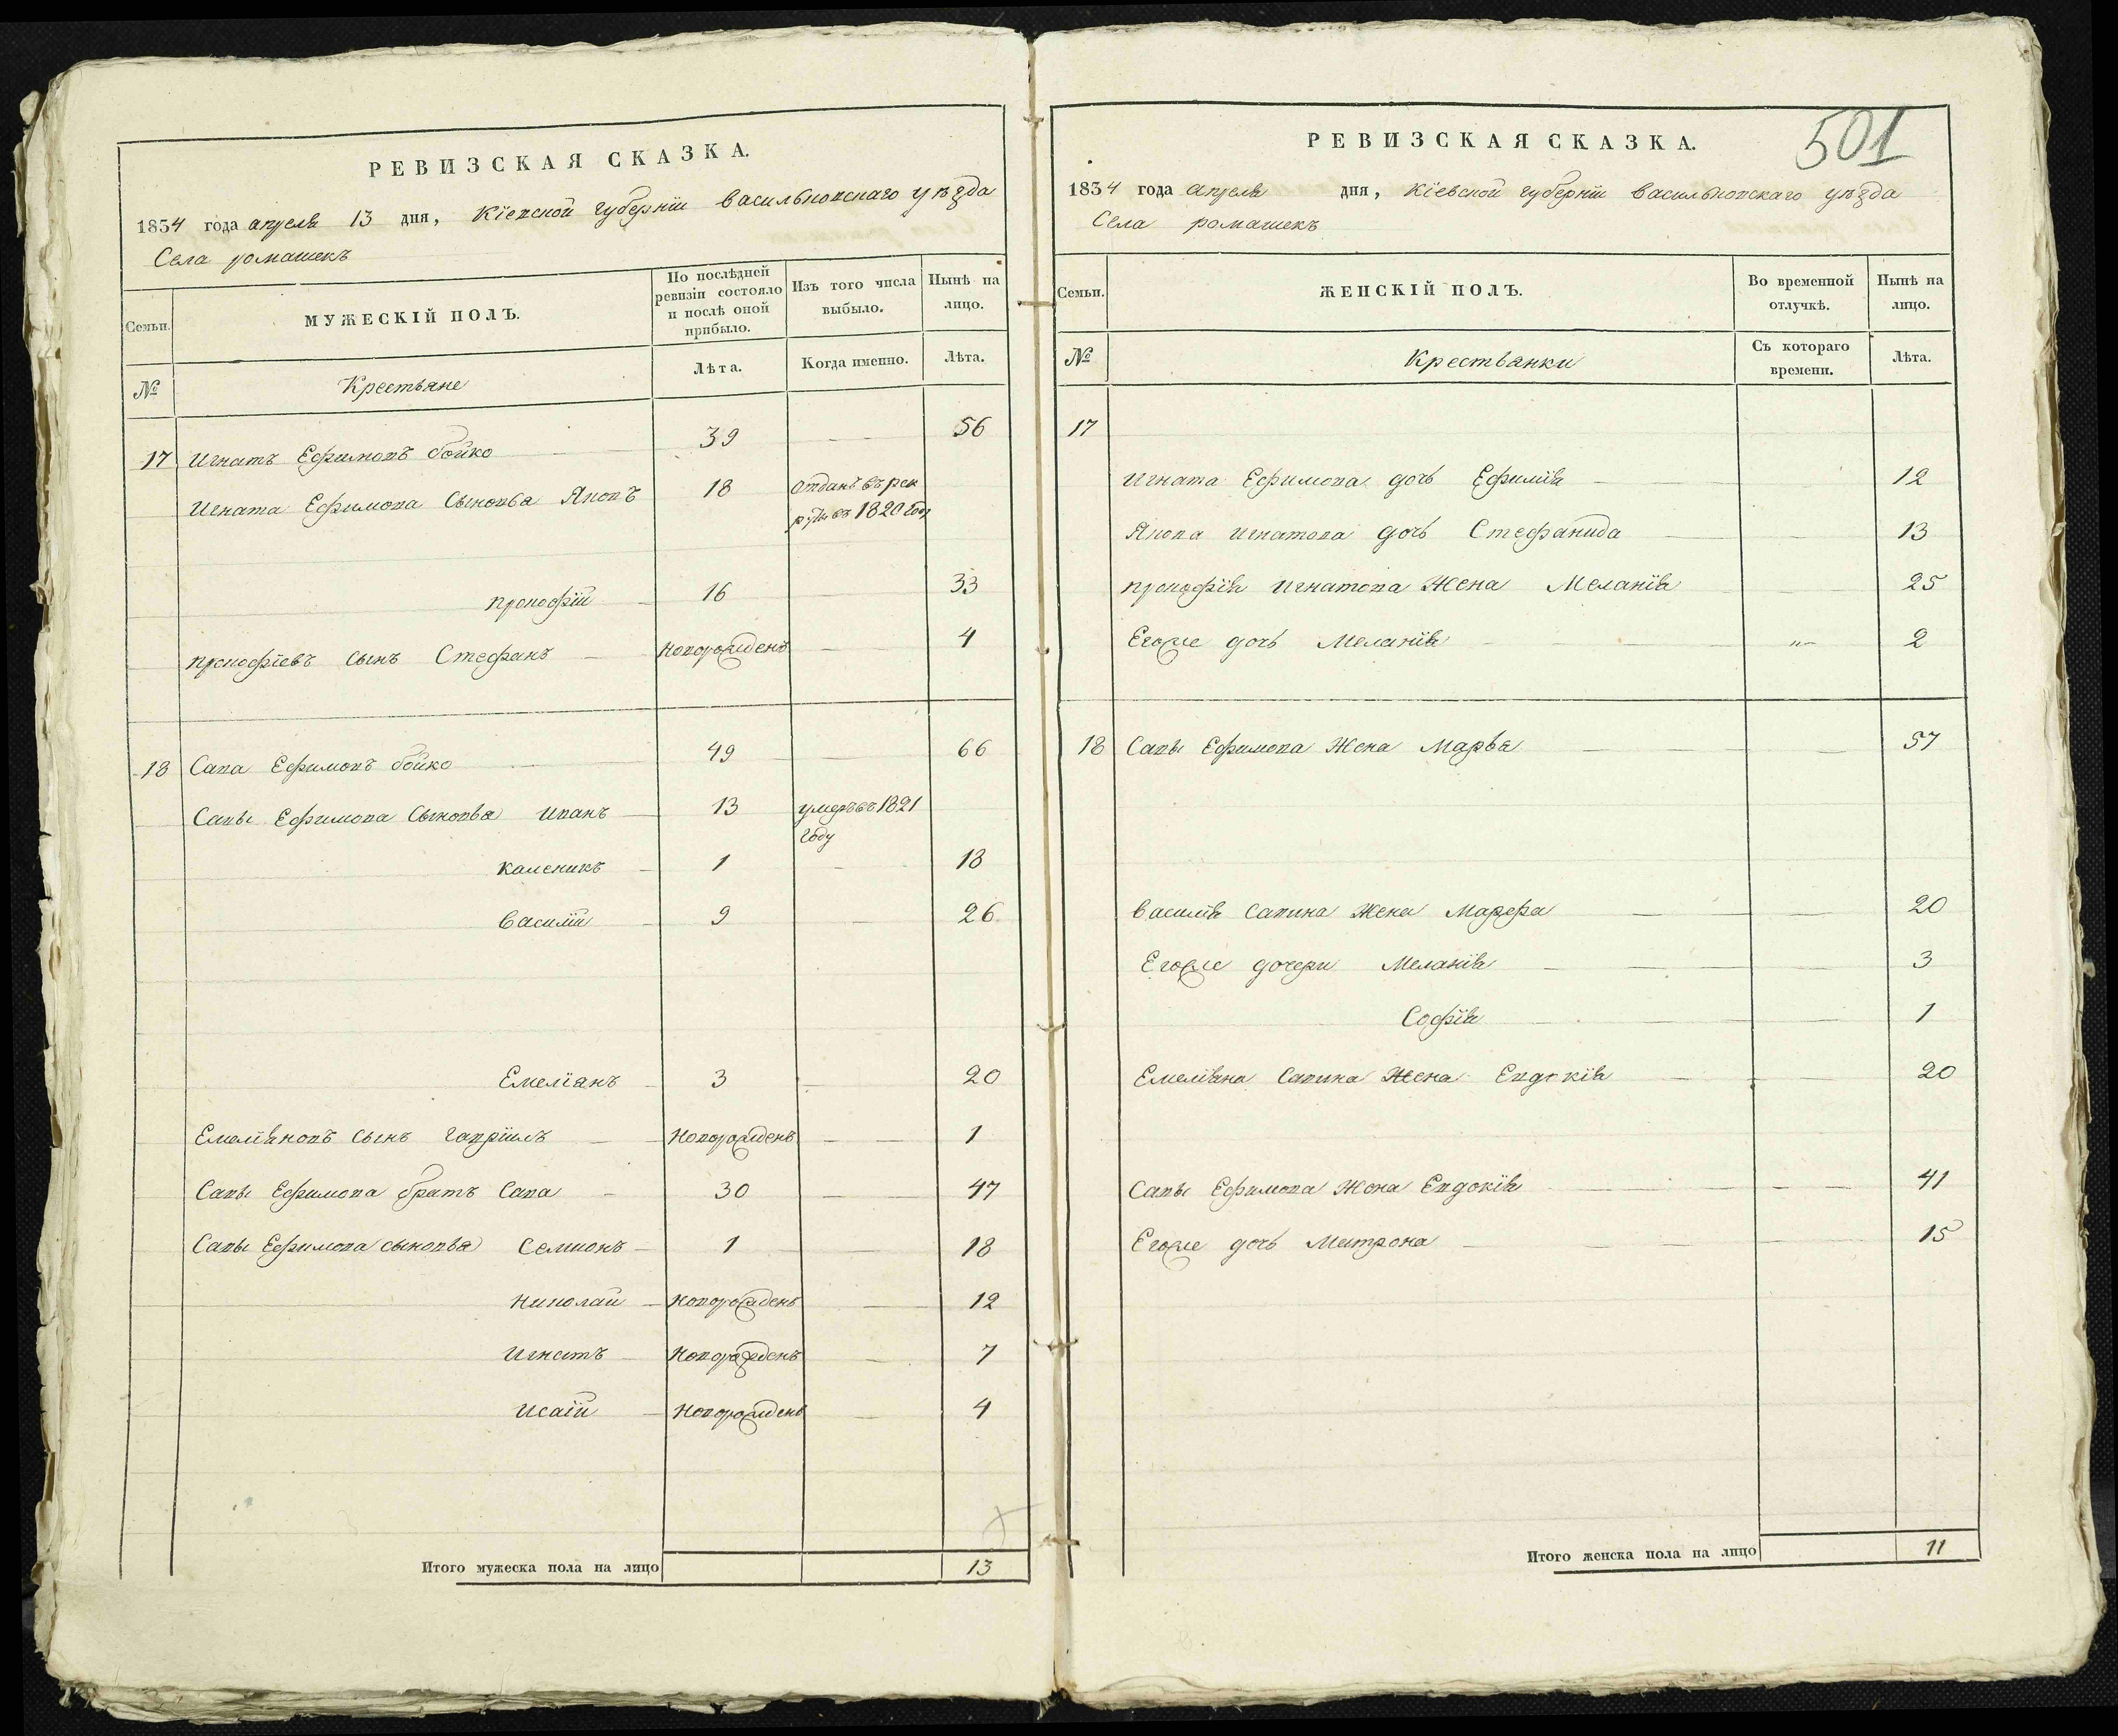 РЕВИЗСКАЯ СКАЗКА.
1834 года апреля 13 дня, Кіевской губерніи васильковскаго уѣзда
Села ромашекъ
Семьи.
МУЖЕСКІЙ ПОЛЪ.
По послѣдней ревизіи состояло и послѣ оной прибыло.
Изъ того числа выбыло.
Нынѣ на лицо.
№
Крестьяне
Лѣта.
Когда именно.
Лѣта.
17 Игнатъ Ефимовъ бойко 39 — 56
Игната Ефимова Сыновья Яковъ 18 Отданъ въ рек
руты въ 1820 Году
прокофій 16 33
прокофіевъ сынъ Стефанъ — Новорожденъ — 4
18 Сава Ефимовъ бойко 49 — 66
Савы Ефимова Сыновья Иванъ 13 умеръ въ 1821
Году
каленикъ 1 - 18
василій 9 — 26
Емеліанъ 3 — 20
Емеліяновъ сынъ гавріилъ — Новорожденъ — 1
Савы Ефимова братъ Сава — 30 — 47
Савы Ефимова сыновья Семионъ — 1 — 18
Николай — Новорожденъ — 12
Игнатъ — Новорожденъ — 7
Исаій — Новорожденъ — 4
Итого мужеска пола на лицо 13
501
РЕВИЗСКАЯ СКАЗКА.
1834 года апреля дня, Кіевской губерніи васильковскаго уѣзда
Села ромашекъ
Семьи.
ЖЕНСКІЙ ПОЛЪ.
Во временной отлучкѣ.
Нынѣ на лицо.
№
Крестьянки
Съ котораго времени.
Лѣта.
17
Игната Ефимова дочь Ефимія — 12
Якова Игнатова дочь Стефанида — 13
прокофія Игнатова Жена Меланія — 25
Егоже дочь Меланія — 2
18 Савы Ефимова Жена Марья — 57
василія Савина Жена Марфа — 20
Егоже дочери Меланія — 3
Софія — 1
Емеліяна Савина Жена Евдокія — 20
Савы Ефимова Жена Евдокія — 41
Егоже дочь Матрона — 15
Итого женска пола на лицо 11